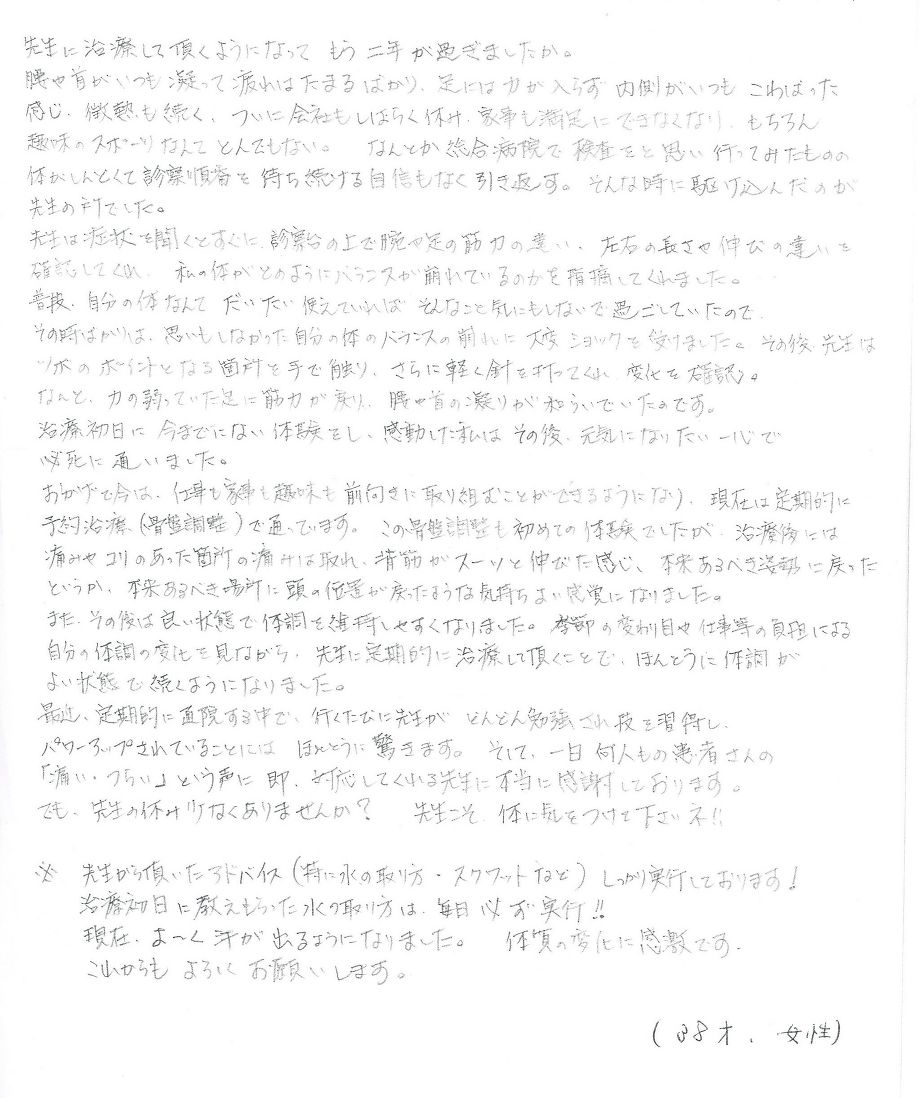 先生に治療して頂くようになって もう二年が過ぎましたか。
腰や首がいつも凝って疲れはたまるばかり、足には力が入らず 内側がいつも こわばった
感じ、微熱も続く、ついに会社もしばらく休み、家事も満足にできなくなり、もちろん
趣味のスポーツなんて とんでもない。 なんとか総合病院で検査をと思い行ってみたものの
体がしんどくて診察順番を待ち続ける自信もなく引き返す。そんな時に駆け込んだのが
先生の所でした。
先生は症状を聞くとすぐに、診察台の上で腕や足の筋力の違い、左右の長さや伸びの違いを
確認してくれ、私の体がどのようにバランスが崩れているのかを指摘してくれました。
普段、自分の体なんて だいたい使えていれば そんなこと気にもしないで過ごしていたので、
その時ばかりは、思いもしなかった自分の体のバランスの崩れに大変ショックを受けました。その後、先生は
ツボのポイントとなる箇所を手で触り、さらに軽く針を打ってくれ、変化を確認。
なんと、力の弱っていた足に筋力が戻り、腰や首の凝りが和らいでいたのです。
治療初日に今までにない体験をし、感動した私は その後、元気になりたい一心で
必死に通いました。
おかげで今は、仕事も家事も趣味も前向きに取り組むことができるようになり、現在は定期的に
予約治療(骨盤調整)で通っています。この骨盤調整も初めての体験でしたが、治療後には
痛みやコリのあった箇所の痛みは取れ、背筋がスーッと伸びた感じ、本来あるべき姿勢に戻った
というか、本来あるべき場所に頭の位置が戻ったような気持ちよい感覚になりました。
また、その後は良い状態で体調を維持しやすくなりました。季節の変わり目や仕事等の負担による
自分の体調の変化を見ながら、先生に定期的に治療して頂くことで、ほんとうに体調が
よい状態で続くようになりました。
最近、定期的に通院する中で、行くたびに先生が どんどん勉強され技を習得し、
パワーアップされていることには ほんとうに驚きます。そして、一日何人もの患者さんの
「痛い・つらい」という声に即、対応してくれる先生に本当に感謝しております。
でも、先生の休み少なくありませんか? 先生こそ、体に気をつけて下さいネ!!
※ 先生から頂いたアドバイス(特に水の取り方・スクワットなど)しっかり実行しております!
治療初日に教えもらった水の取り方は、毎日必ず実行!!
現在、よ〜く汗が出るようになりました。 体質の変化に感激です。
これからも よろしく お願いします。
(38才、女性)